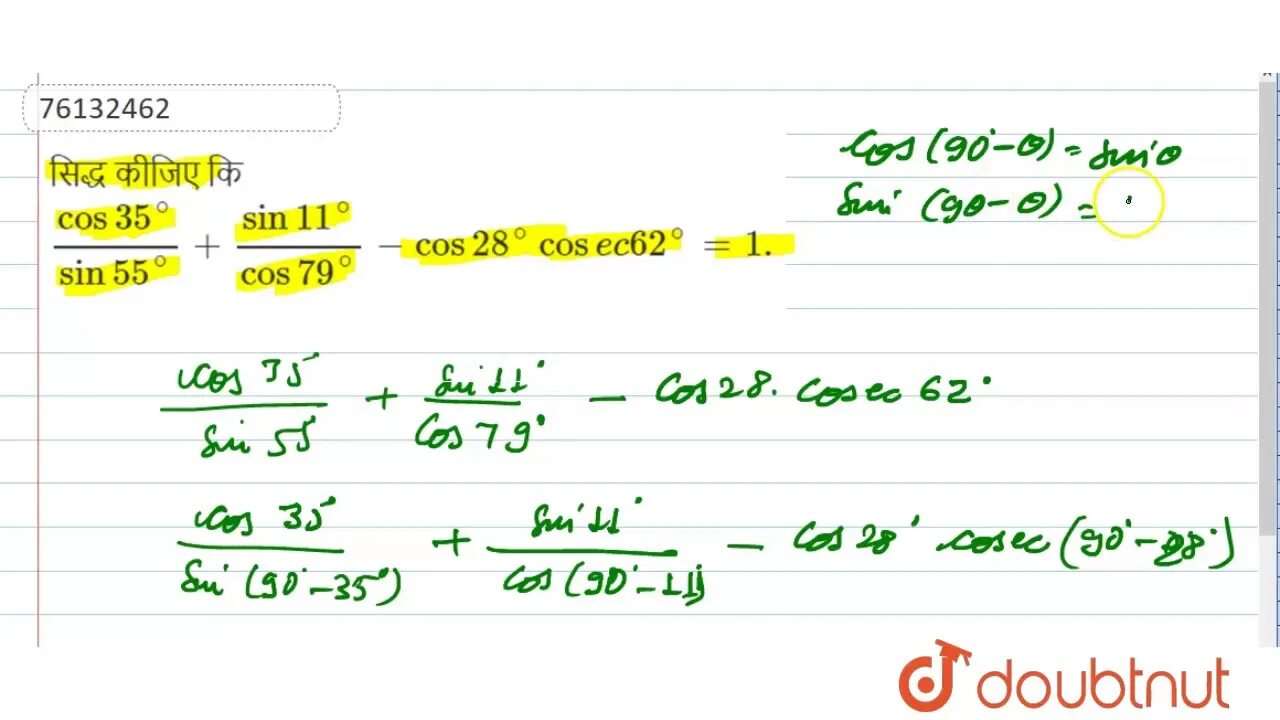 76132462
सिद्ध कीजिए कि
cos 35° / sin 55° + sin 11° / cos 79° − cos 28° cos ec62° = 1.
cos (90° − θ) = sin θ
sin (90 − θ) =
cos 35° / sin 55° + sin 11° / cos 79° − cos 28. cosec 62°
cos 35° / sin (90° − 35°) + sin 11° / cos (90° − 11°) − cos 28° cosec (90° − 28°)
doubtnut